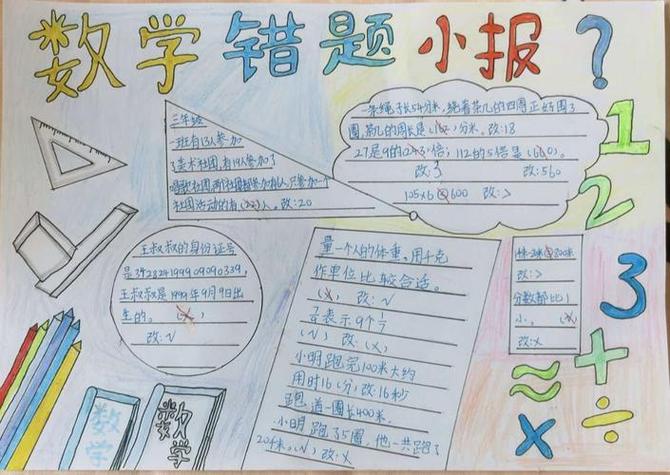 数学错题小报?
三年级
一班有13人参加
了美术社团,有19人参加了
唱歌社团,两个社团都参加有人,只参加一个
社团活动的有(22)人。改:20
一条绳子长54分米,绕着茶几的四周正好围3
圈,茶几的周长是( )分米。改:18
27是9的(243)倍;112的5倍是(660)。
改:3 改:560
105×6 600 改:>
王叔叔的身份证号
是392824199909090339,
王叔叔是1999年9月9日出
生的。(×)
改:√
量一个人的体重,用千克
作单位比较合适。
(×) 改:√
表示9个
(√) 改:(×)
小明跑完100米大约
用时16(分)改:16秒
跑道一圈长400米,
小明跑了5圈,他一共跑了
204米。(√)改:×
改:>
分数都比1
小。(×)
改:×
1
2
3
+
≈
÷
×
数学
数学